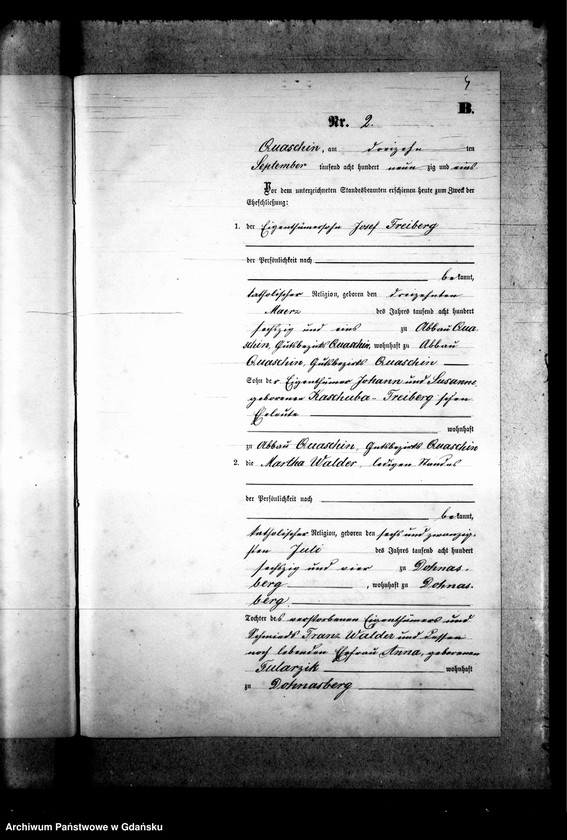 4
B.
Nr. 2.
Quaschin, am dreizehn ten
September tausend acht hundert neun zig und eins
Vor dem unterzeichneten Standesbeamten erschienen heute zum Zweck der
Eheschließung:
1. der Eigenthümersohn Josef Freiberg
der Persönlichkeit nach
be kannt,
katholischer Religion, geboren den dreizehnten
Maerz des Jahres tausend acht hundert
sechzig und eins zu Abbau Qua
schin, Gutsbezirk Quaschin, wohnhaft zu Abbau
Quaschin, Gutsbezirk Quaschin
Sohn der Eigenthümer Johann und Susanna
geborenen Kaschuba - Freiberg'schen
Eheleute
wohnhaft
zu Abbau Quaschin, Gutsbezirk Quaschin
2. die Martha Walder, ledigen Standes
der Persönlichkeit nach
be kannt,
katholischer Religion, geboren den sechs und zwanzig-
sten Juli des Jahres tausend acht hundert
sechzig und vier zu Dohnas-
berg, wohnhaft zu Dohnas-
berg
Tochter des verstorbenen Eigenthümers und
Schmieds Franz Walder und dessen
noch lebenden Ehefrau Anna, geborenen
Tularzik wohnhaft
zu Dohnasberg
Archiwum Państwowe w Gdańsku